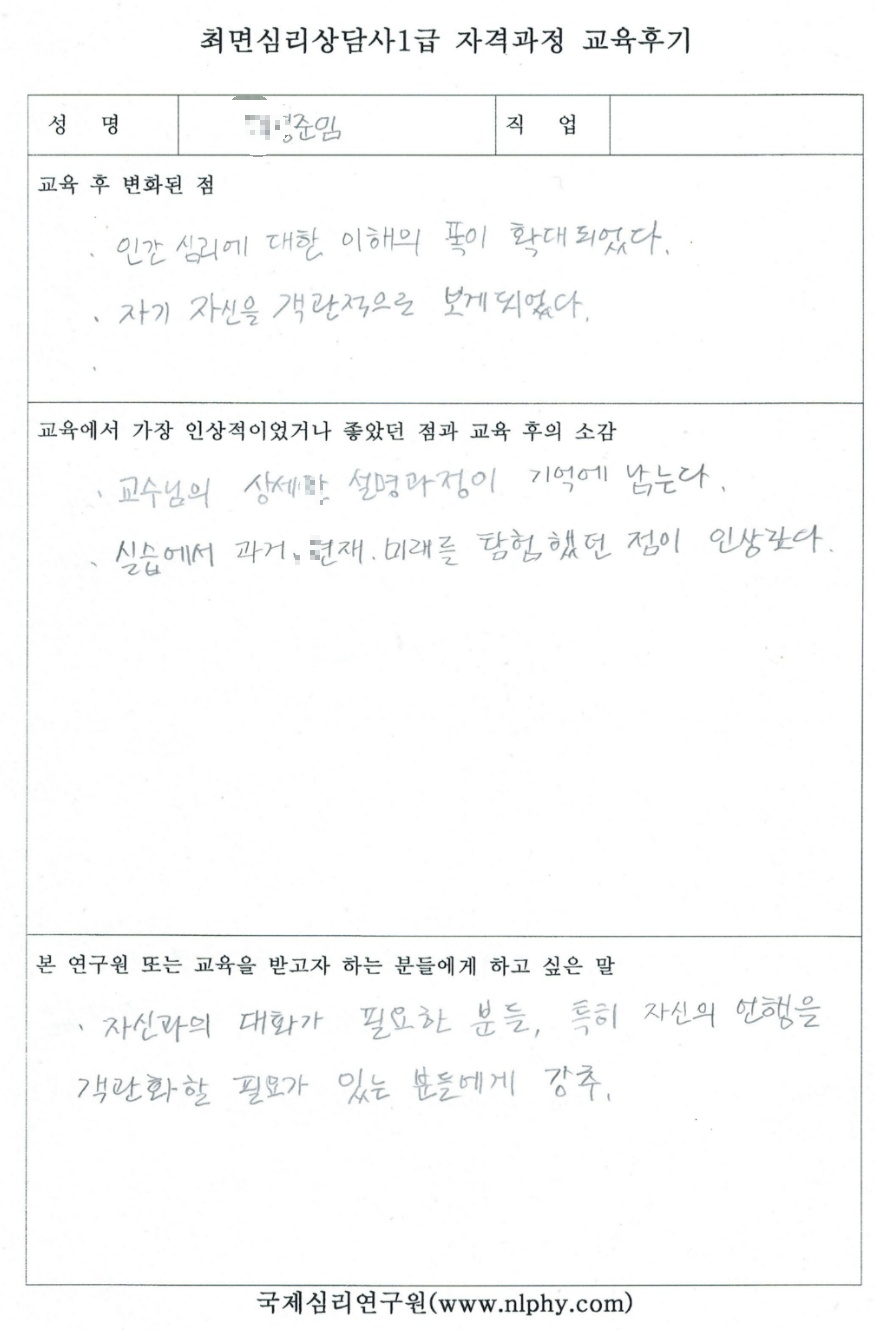 최면심리상담사1급 자격과정 교육후기
성 명 준임 직 업
교육 후 변화된 점
· 인간 심리에 대한 이해의 폭이 확대되었다.
· 자기 자신을 객관적으로 보게되었다.
·
교육에서 가장 인상적이었거나 좋았던 점과 교육 후의 소감
· 교수님의 상세한 설명과정이 기억에 남는다.
· 실습에서 과거, 현재. 미래를 탐험했던 점이 인상깊다.
본 연구원 또는 교육을 받고자 하는 분들에게 하고 싶은 말
· 자신과의 대화가 필요한 분들, 특히 자신의 언행을
객관화할 필요가 있는 분들에게 강추.
국제심리연구원(www.nlphy.com)